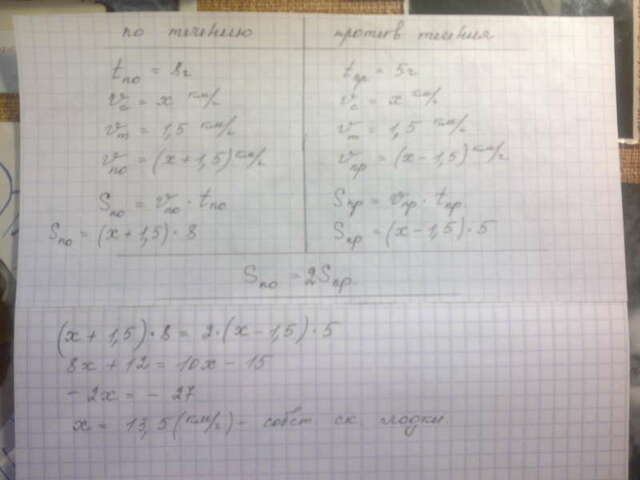 по течению против течения
tпо = 8ч tпр = 5ч
vс = x км/ч vс = x км/ч
vт = 1,5 км/ч vт = 1,5 км/ч
vпо = (x+1,5) км/ч vпр = (x-1,5) км/ч
Sпо = vпо · tпо Sпр = vпр · tпр
Sпо = (x+1,5) · 8 Sпр = (x-1,5) · 5
Sпо = 2Sпр
(x+1,5) · 8 = 2·(x-1,5) · 5
8x + 12 = 10x - 15
- 2x = - 27
x = 13,5 (км/ч) - собст ск. лодки